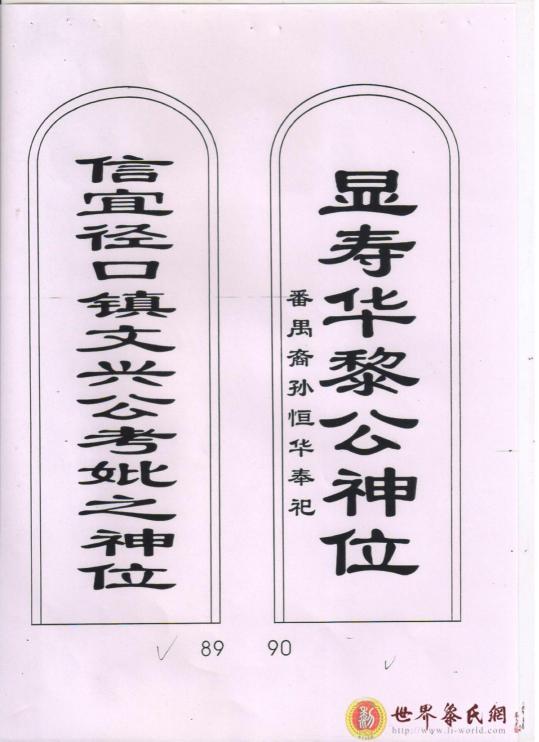 显寿华黎公神位
番禺裔孙恒华奉祀
信宜径口镇文兴公考妣之神位
89
90
世界黎氏網
http://www.li-world.com